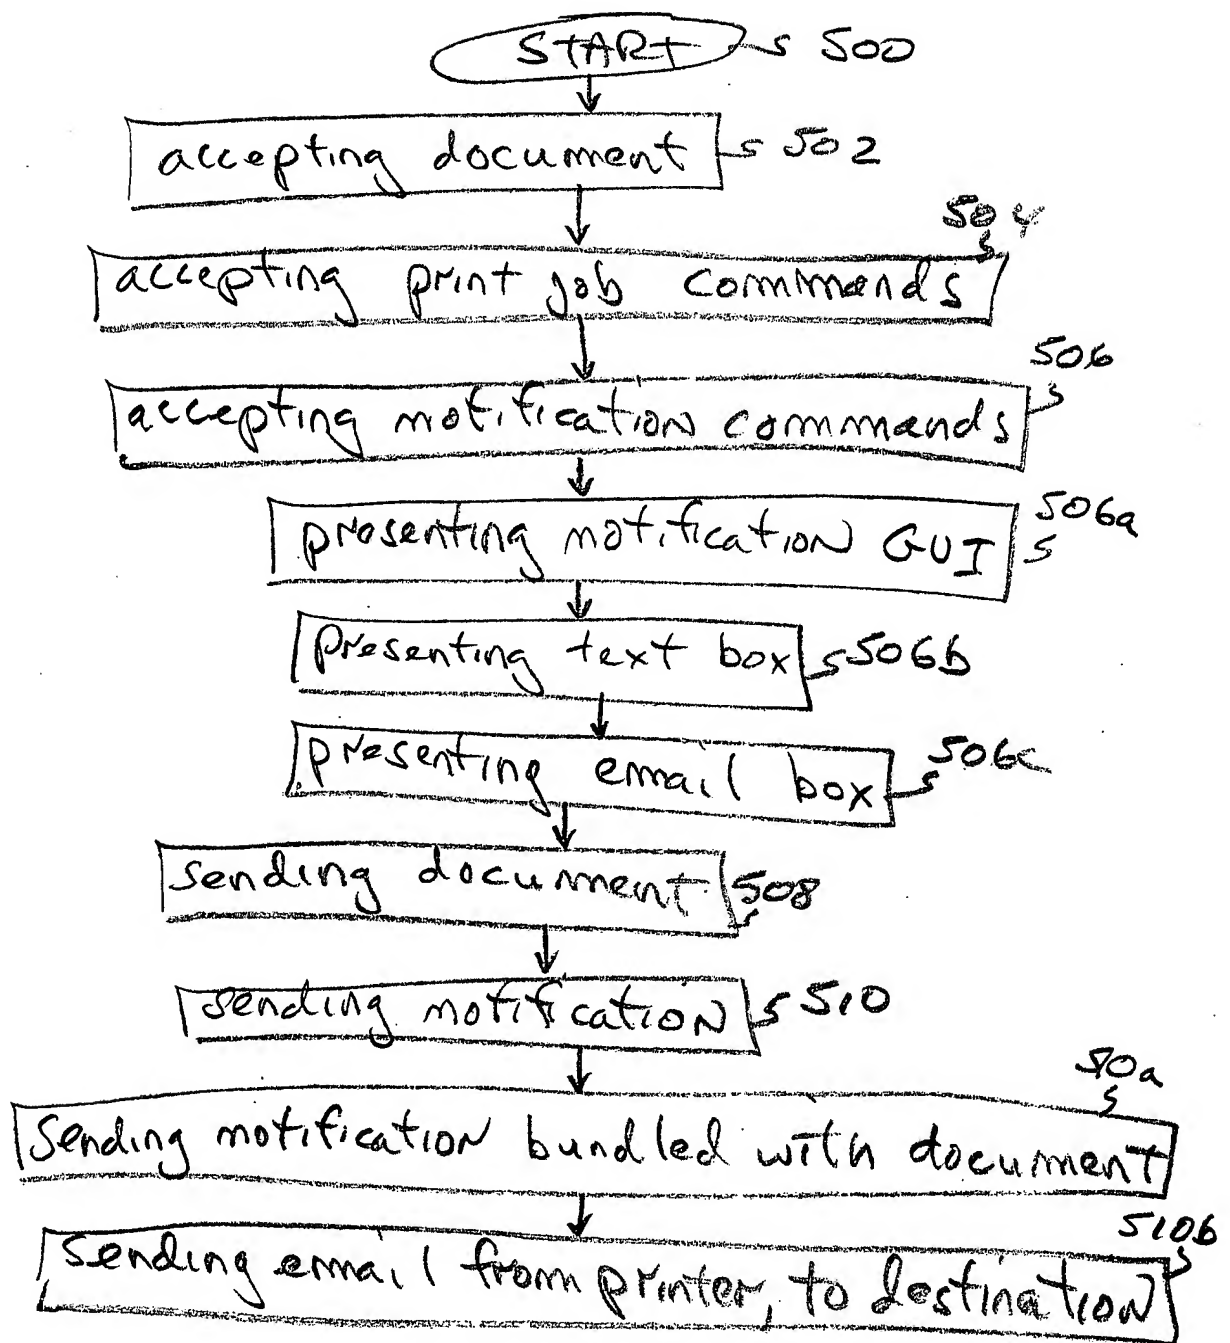 START 500
accepting document 502
504
accepting print job commands
506
accepting notification commands
506a
presenting notification GUI
presenting text box 506b
506c
presenting email box
sending document 508
sending notification 510
510a
sending notification bundled with document
510b
sending email from printer, to destination